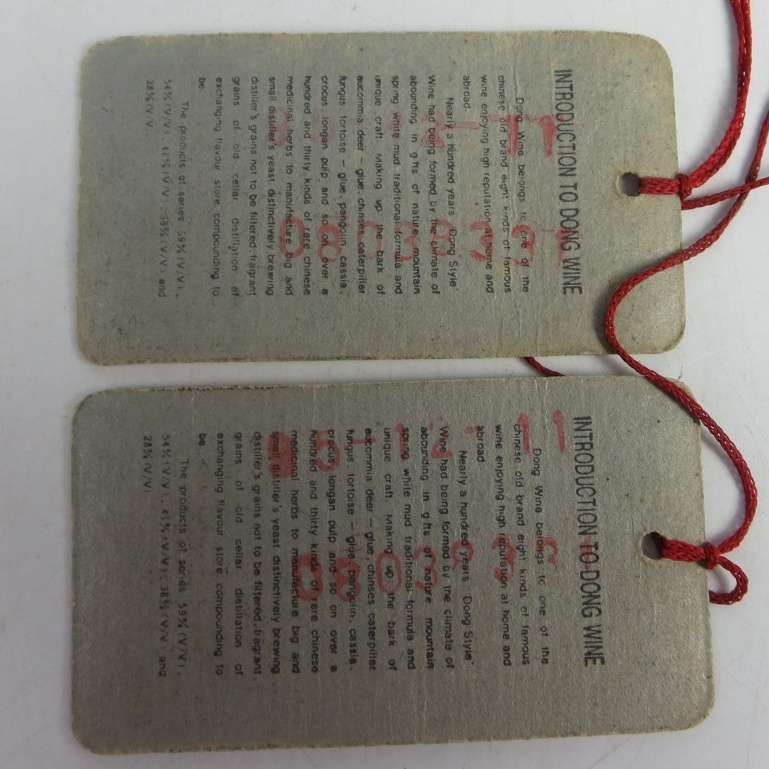 INTRODUCTION TO DONG WINE
Dong Wine belongs to one of the
chinese old brand eight kinds of famous
wine enjoying high reputation at home and
abroad.
Nearly a hundred years "Dong Style"
Wine had being formed by the climate of
abounding in gifts of nature mountain
spring white mud traditional formula and
unique craft. Making up the bark of
eucommia deer — glue chinses caterpiller
fungus tortoise — glue, pangolin, cassia,
crocus longan pulp and so on over a
hundred and thirty kinds of rare chinese
medicinal herbs to manufacture big and
small distiller's yeast distinctively brewing
distiller's grains not to be filtered fragrant
grains of old cellar distillation of
exchanging flavour store compounding to
be.
The products of series 59%(V/V),
54%(V/V), 41%(V/V), 38%(V/V) and
28%(V/V).
INTRODUCTION TO DONG WINE
Dong Wine belongs to one of the
chinese old brand eight kinds of famous
wine enjoying high reputation at home and
abroad
Nearly a hundred years "Dong Style"
Wine had being formed by the climate of
abounding in gifts of nature mountain
spring white mud traditional formula and
unique craft. Making up, the bark of
eucommia deer — glue, chinses caterpiller
fungus, tortoise — glue, pangolin, cassia,
crocus longan pulp and so on over a
hundred and thirty kinds of rare chinese
medicinal herbs to manufacture big and
small distiller's yeast distinctively brewing
distiller's grains not to be filtered fragrant
grains of old cellar distillation of
exchanging flavour store compounding to
be
The products of series 59%(V/V),
54%(V/V), 41%(V/V), 38%(V/V) and
28%(V/V)